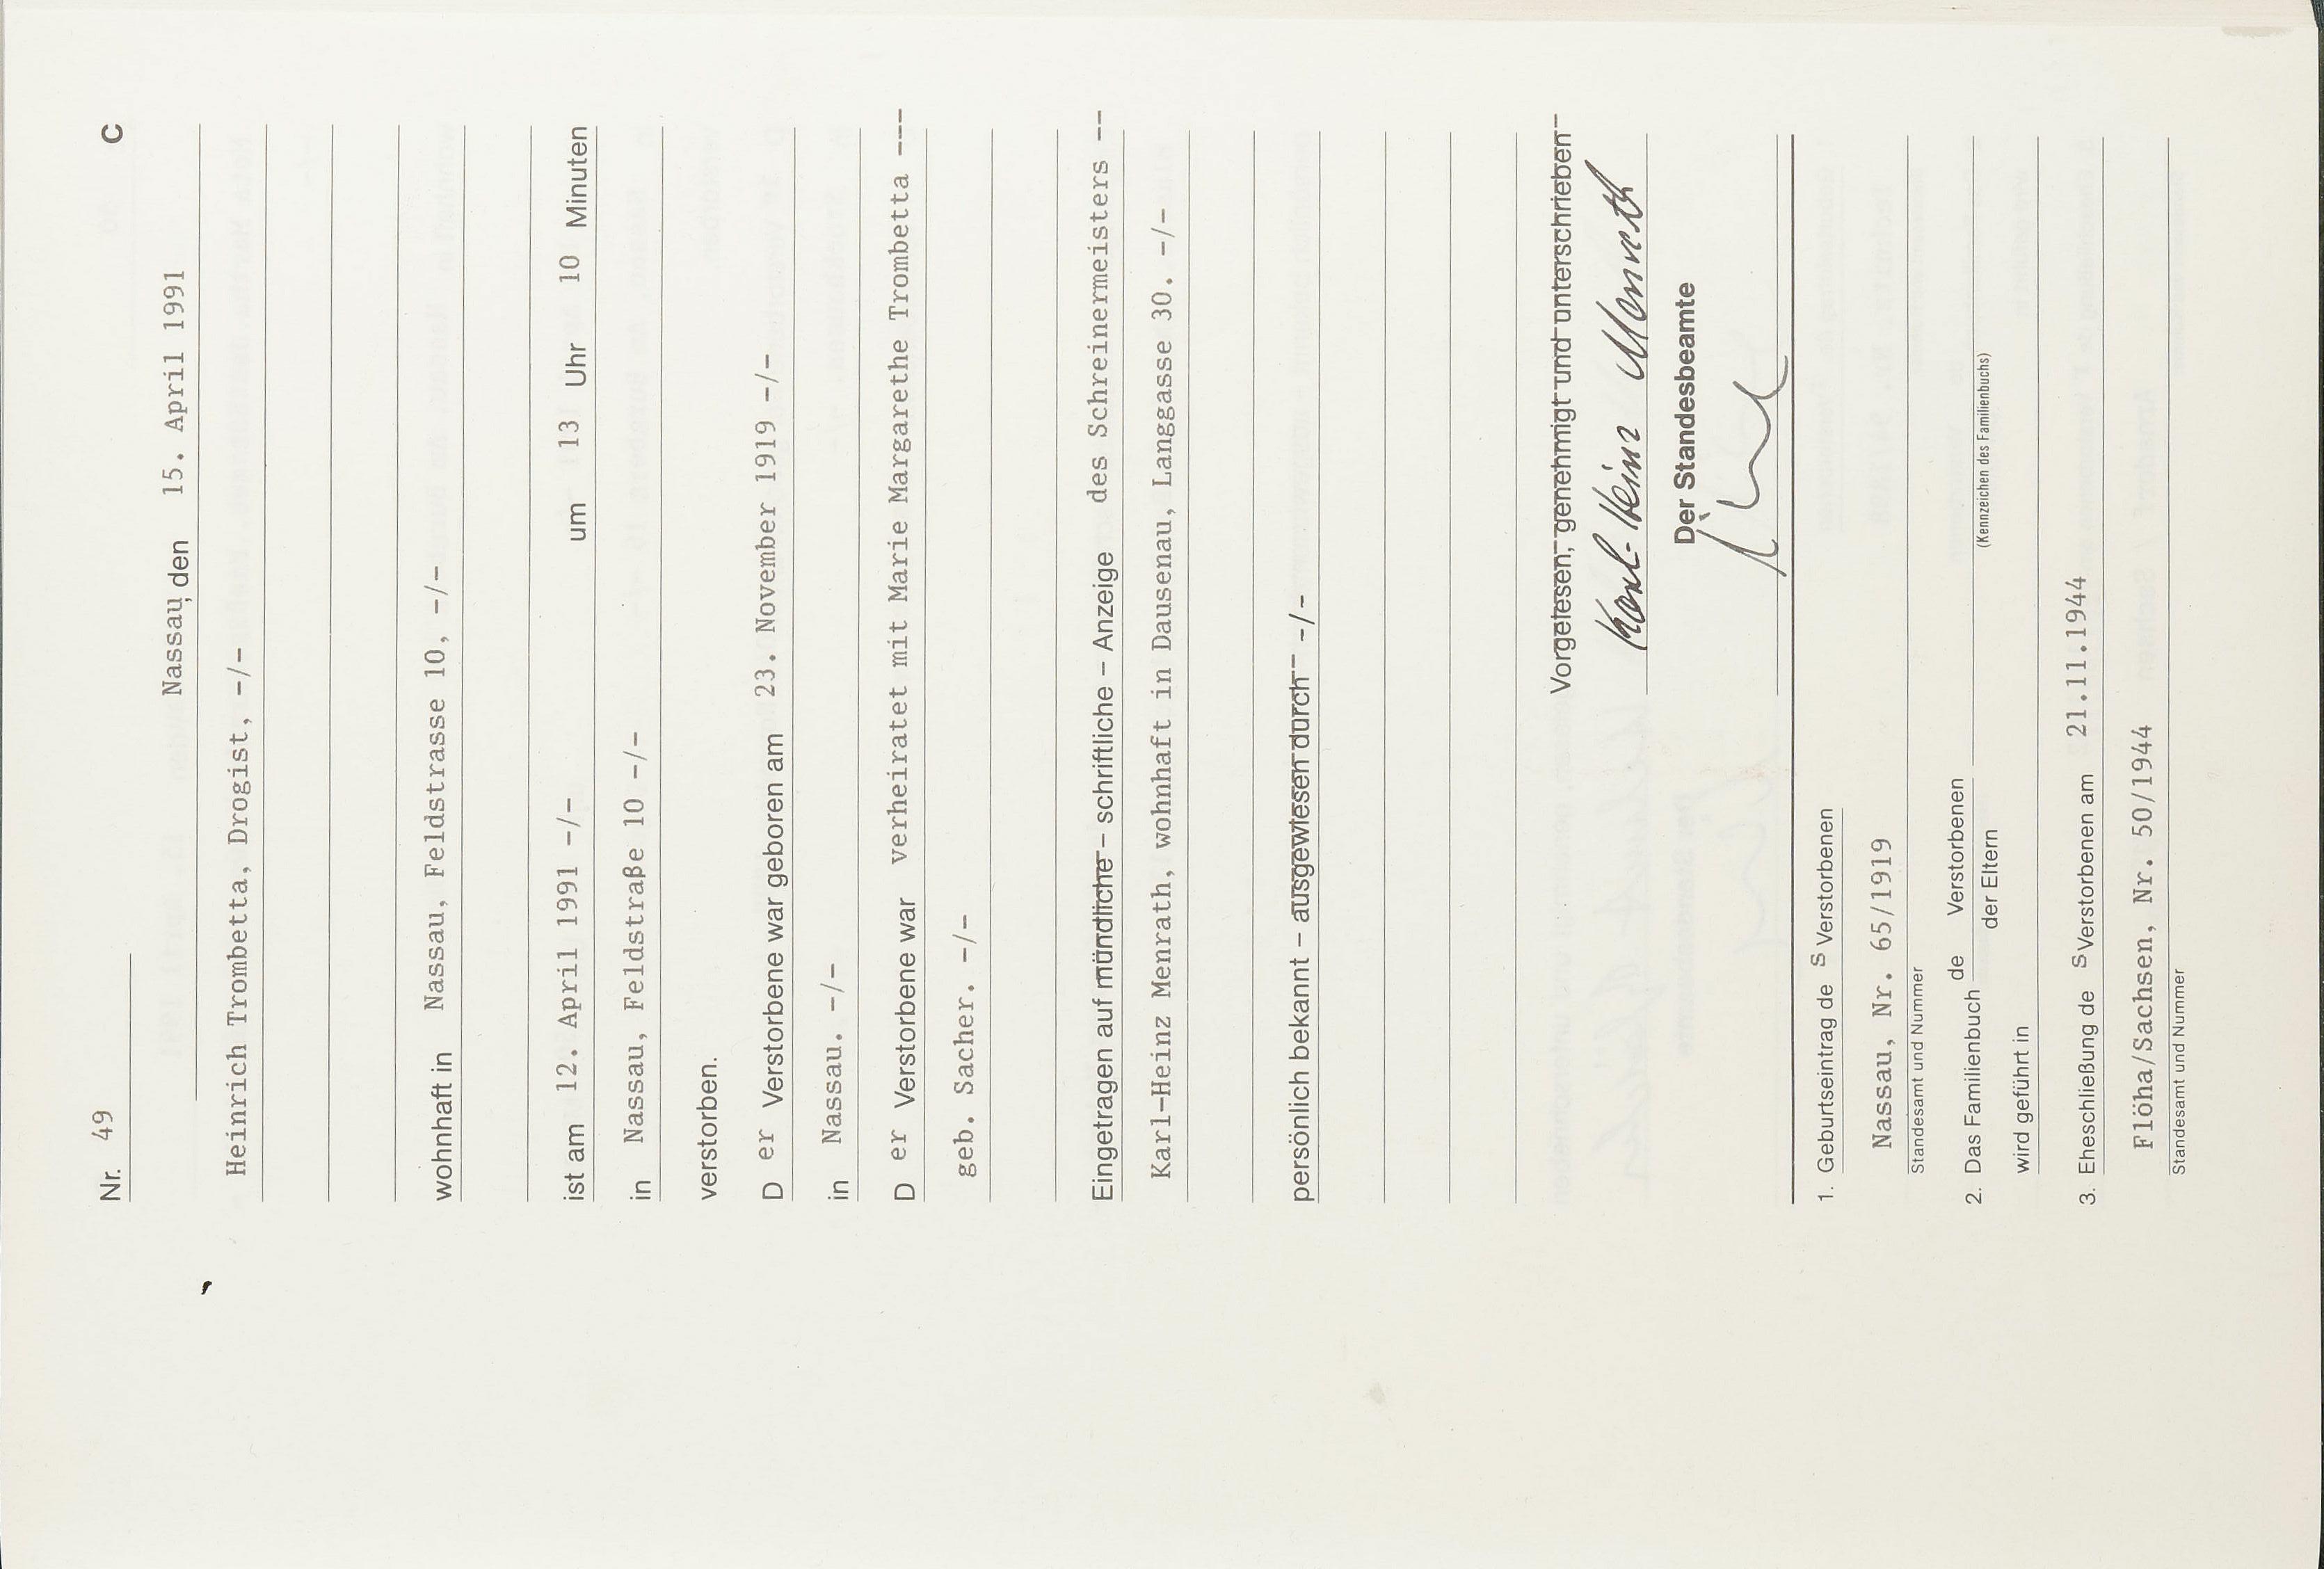 Nr. 49 C
Nassau, den 15. April 1991
Heinrich Trombetta, Drogist, -/-
wohnhaft in Nassau, Feldstrasse 10, -/-
ist am 12. April 1991 -/- um 13 Uhr 10 Minuten
in Nassau, Feldstraße 10 -/-
verstorben.
D er Verstorbene war geboren am 23. November 1919 -/-
in Nassau. -/-
D er Verstorbene war verheiratet mit Marie Margarethe Trombetta ---
geb. Sacher. -/-
Eingetragen auf mündliche – schriftliche – Anzeige des Schreinermeisters --
Karl-Heinz Menrath, wohnhaft in Dausenau, Langgasse 30. -/-
persönlich bekannt – ausgewiesen durch -/-
Vorgelesen, genehmigt und unterschrieben
Karl-Heinz Menrath
Der Standesbeamte
1. Geburtseintrag de S Verstorbenen
Nassau, Nr. 65/1919
Standesamt und Nummer
2. Das Familienbuch de Verstorbenen
der Eltern (Kennzeichen des Familienbuchs)
wird geführt in
3. Eheschließung de S Verstorbenen am 21.11.1944
Flöha/Sachsen, Nr. 50/1944
Standesamt und Nummer